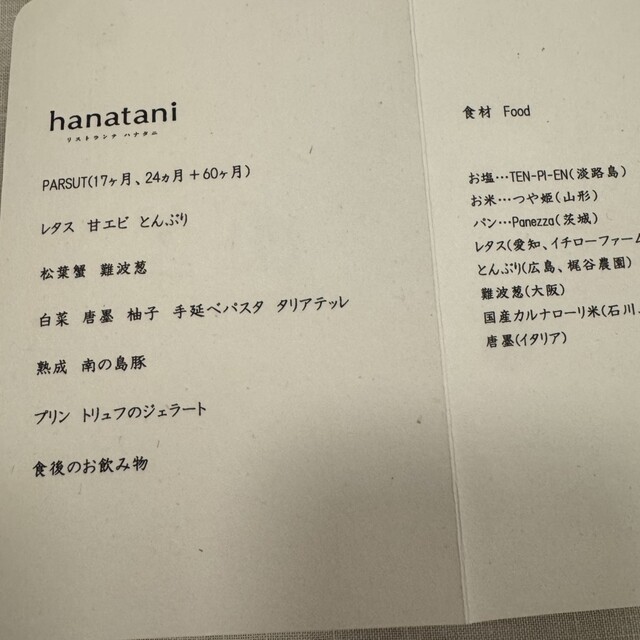 hanatani
リストランテ ハナタニ
PARSUT(17ヶ月、24ヵ月＋60ヶ月)
レタス 甘エビ とんぶり
松葉蟹 難波葱
白菜 唐墨 柚子 手延べパスタ タリアテッレ
熟成 南の島豚
プリン トリュフのジェラート
食後のお飲み物
食材 Food
お塩…TEN-PI-EN(淡路島)
お米…つや姫(山形)
パン…Panezza(茨城)
レタス(愛知、イチローファーム
とんぶり(広島、梶谷農園)
難波葱(大阪)
国産カルナローリ米(石川、
唐墨(イタリア)